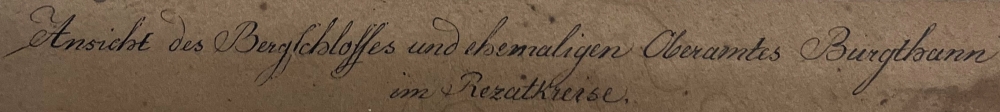 Ansicht des Bergschlosses und ehemaligen Oberamtes Burgthann
im Rezatkreise.